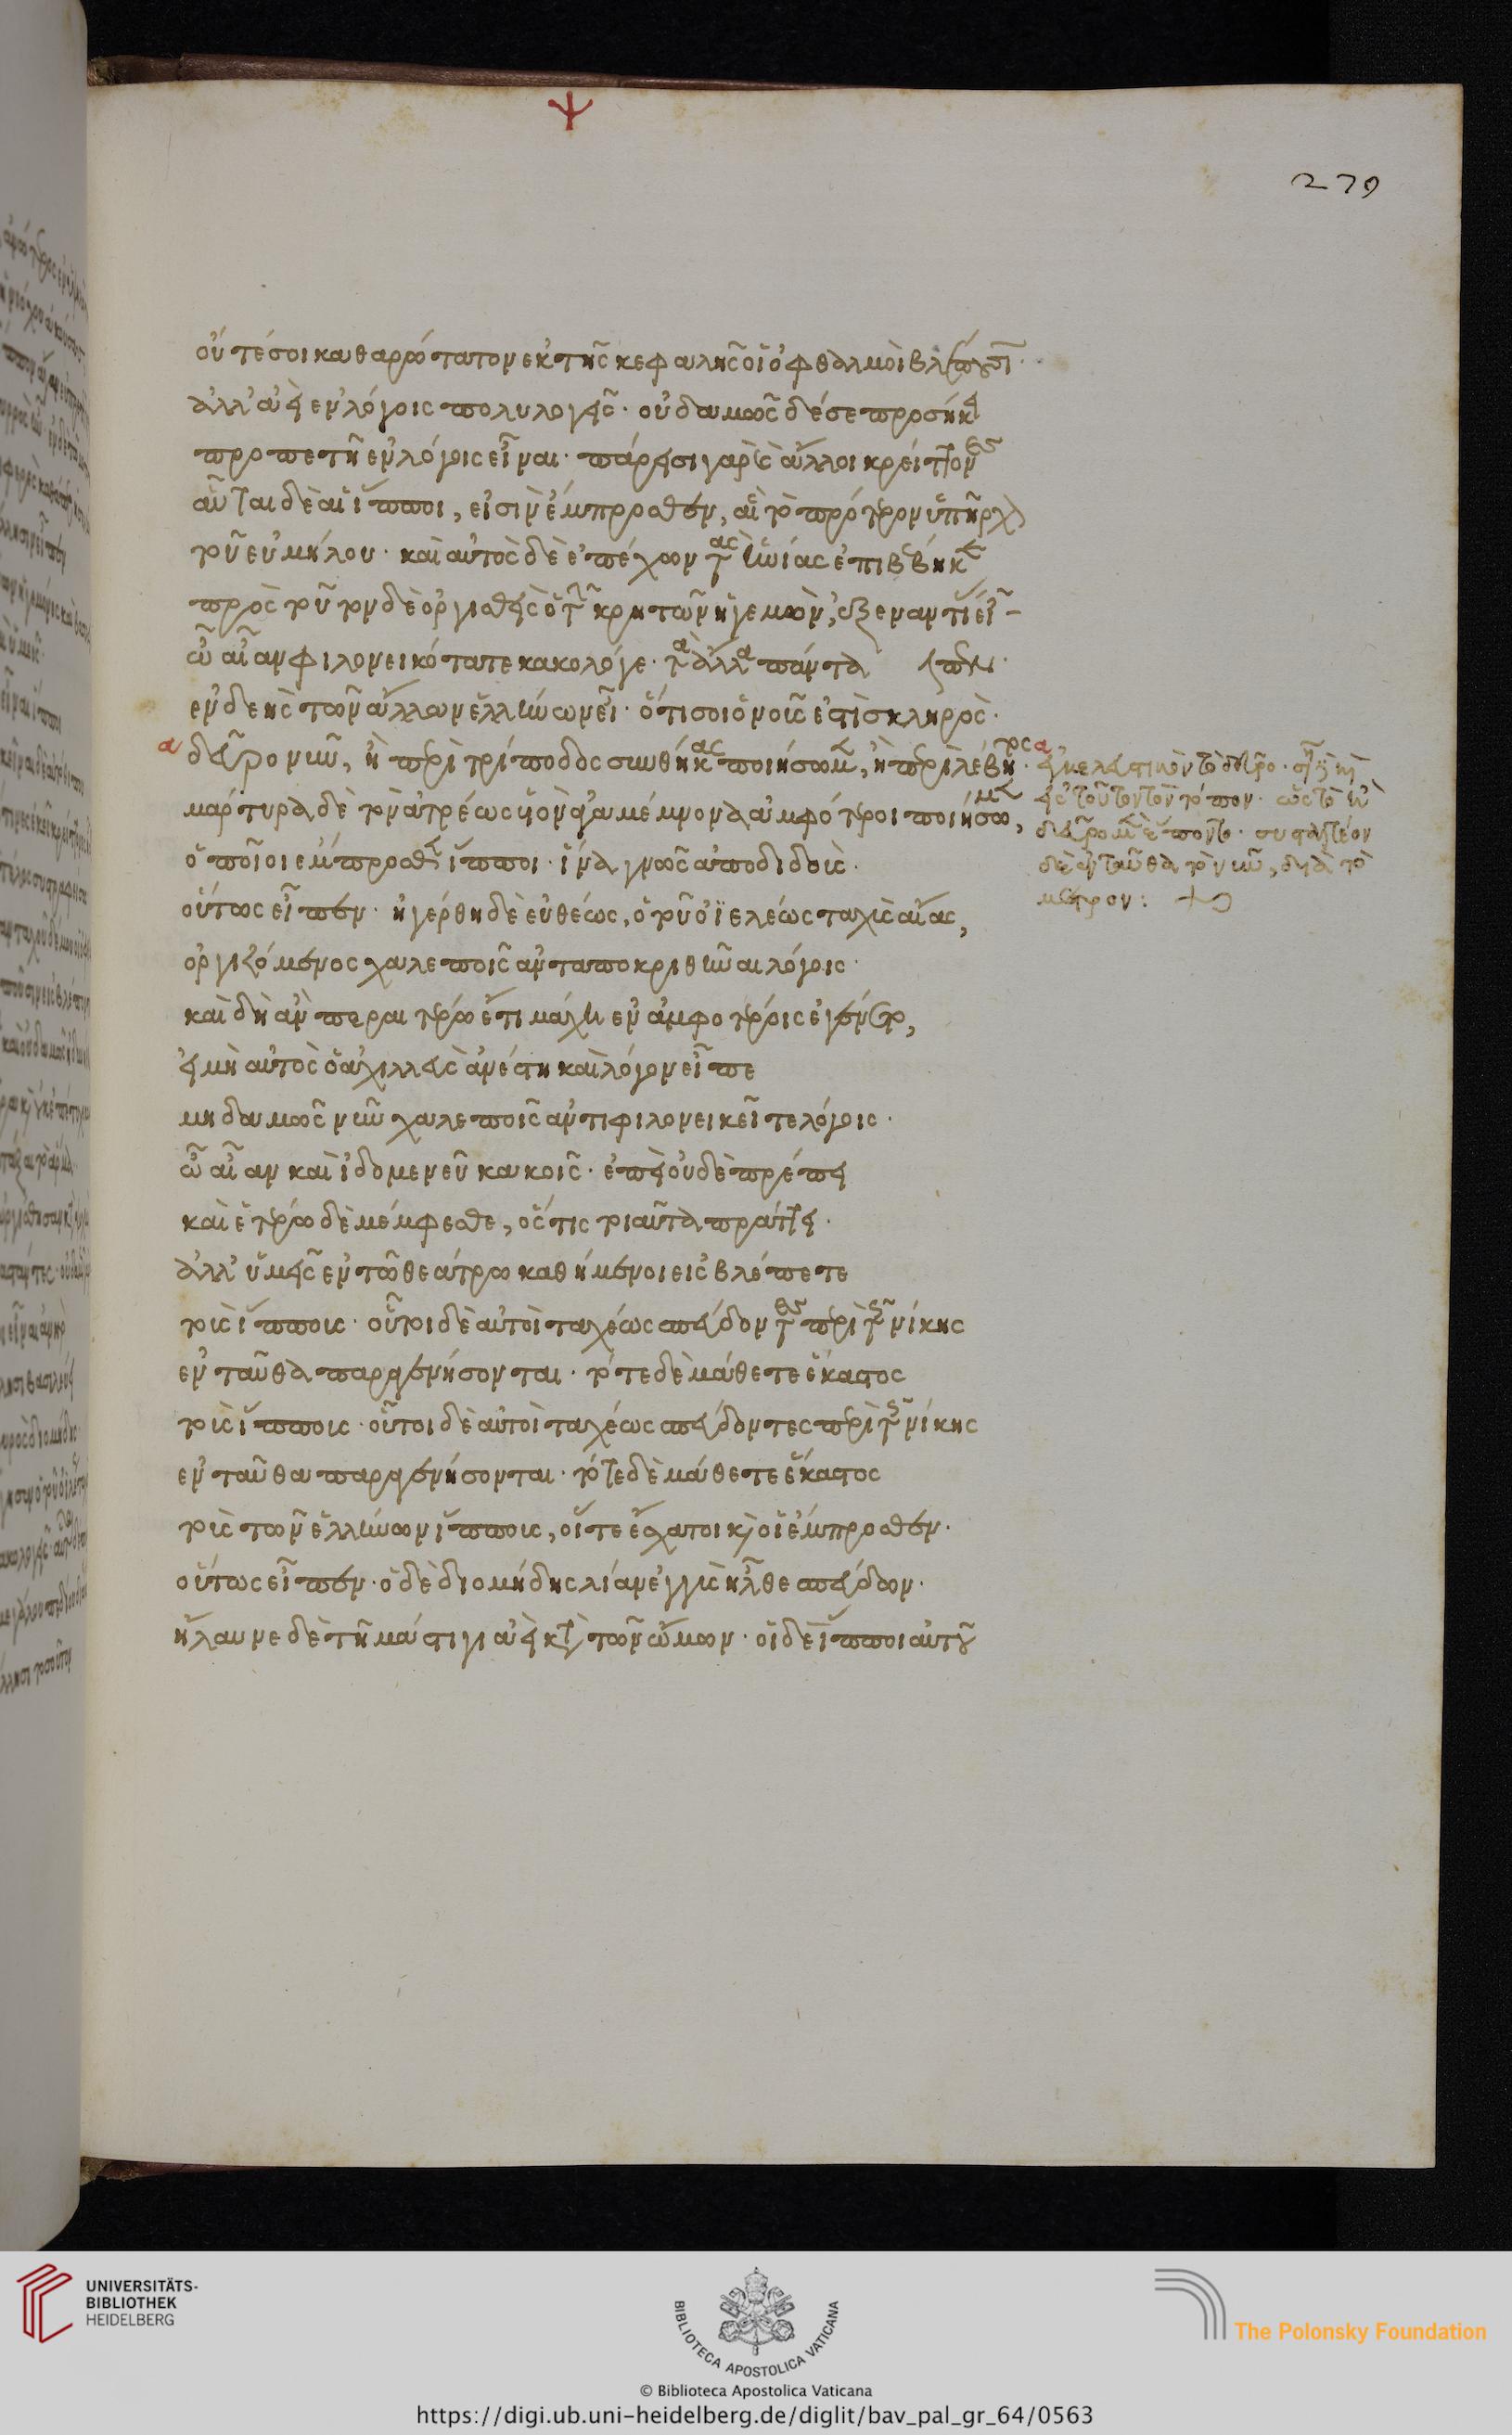 Ψ
279
οὔτέ σοι καθαρώτατον ἐκ τῆς κεφαλῆς οἱ ὀφθαλμοὶ βλέπουσι·
ἀλλ' ἀεὶ ἐν λόγοις πολυλογεῖς· οὐδαμῶς δέ σε προσήκει
προπετῆ ἐν λόγοις εἶναι· πάρεισι γὰρ καὶ ἄλλοι κρείττονες
αὗται δὲ αἱ ἵπποι, εἰσὶν ἔμπροσθεν, αἳ τὸ πρότερον ὑπῆρχον
τοῦ εὐμήλου· καὶ αὐτὸς δὲ ἐπέχων τὰς ἡνίας ἐπιβέβηκε
πρὸς τοῦτον δὲ ὀργισθεὶς ὁ τῶν κρητῶν ἡγεμὼν, ἐξεναντίας εἶ-
ὦ αἶαν φιλονεικότατε κακολόγε· τὰ ἄλλα πάντα πεν·
ἐνδεὴς τῶν ἄλλων ἑλλήνων εἶ· ὅτι σοι ὁ νοῦς ἐστὶ σκληρὸς·
α δεῦρο νῦν, ἢ περὶ τρίποδος συνθήκας ποιήσωμεν, ἢ περὶ λέβητος
μάρτυρα δὲ τὸν ἀτρέως υἱὸν ἀγαμέμνονα ἀμφότεροι ποιήσωμεν,
ὁποῖοι ἔμπροσθεν ἵπποι· ἵνα γνῶς ἀποδιδοὺς·
οὕτως εἶπεν· ἠγέρθη δὲ εὐθέως, ὁ τοῦ ὀϊελέως ταχὺς αἴας,
ὀργιζόμενος χαλεποῖς ἀνταποκριθῆναι λόγοις·
καὶ δὴ ἂν περαιτέρω ἔτι μάχη ἐν ἀμφοτέροις ἐγένετο,
εἰ μὴ αὐτὸς ὁ ἀχιλλεὺς ἀνέστη καὶ λόγον εἶπε
μηδαμῶς νῦν χαλεποῖς ἀντιφιλονεικεῖτε λόγοις·
ὦ αἶαν καὶ ἰδομενεῦ κακοῖς· ἐπεὶ οὐδὲ πρέπει
καὶ ἑτέρω δὲ μέμφεσθε, ὅστις τοιαῦτα πράττει·
ἀλλ' ὑμεῖς ἐν τῶ θεάτρω καθήμενοι εἰσβλέπετε
τοὺς ἵππους· οὗτοι δὲ αὐτοὶ ταχέως σπεύδοντες περὶ τῆς νίκης
ἐνταῦθα παραγενήσονται· τότε δὲ μάθετε ἕκαστος
τοὺς ἵππους· οὗτοι δὲ αὐτοὶ ταχέως σπεύδοντες περὶ τῆς νίκης
ἐνταῦθα παραγενήσονται· τότε δὲ μάθετε ἕκαστος
τοὺς τῶν ἑλλήνων ἵππους, οἵ τε ἔσχατοι καὶ οἱ ἔμπροσθεν·
οὕτως εἶπεν· ὁ δὲ διομήδης λίαν ἐγγὺς ἦλθε σπεύδων·
ἤλαυνε δὲ τῆ μάστιγι ἀεὶ κατὰ τῶν ὤμων· οἱ δὲ ἵπποι αὐτοῦ
α ἐγκελευστικὸν τὸ δεῦρο·
εἰς τοῦτον τὸν τόπον· ὡς τὸ
δεῦρο ἕποντο· συσταλτέον
δὲ ἐνταῦθα τὸ νῦν, διὰ τὸ
μέτρον:
UNIVERSITÄTS-
BIBLIOTHEK
HEIDELBERG
BIBLIOTECA APOSTOLICA VATICANA
The Polonsky Foundation
© Biblioteca Apostolica Vaticana
https://digi.ub.uni-heidelberg.de/diglit/bav_pal_gr_64/0563